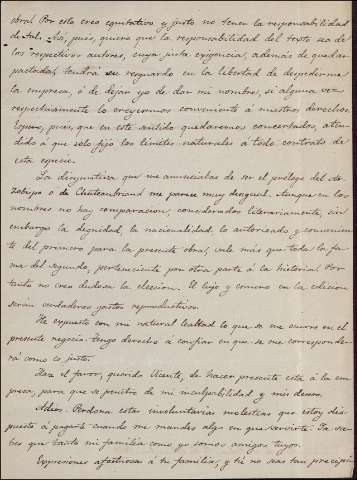 obra! Por esto creo equitativo y justo no tener la responsabilidad
de tal. Así, pues, quiero que la responsabilidad del texto sea de
los respectivos autores, cuya justa exigencia, además de quedar
pactada, tendrá su resguardo en la libertad de despedirme
la empresa, ó de dejar yo de dar mi nombre, si alguna vez
respectivamente lo creyéramos conveniente á nuestros derechos.
Espero, pues, que en este sentido quedaremos concertados, aten-
dido á que solo fijo los límites naturales á todo contrato de
esta especie.
La disyuntiva que me anunciabas de ser el prólogo del Ar-
zobispo o de Chateaubriand me parece muy desigual. Aunque en los
nombres no hay comparacion, considerados literariamente, sin
embargo la dignidad, la nacionalidad, lo autorizado y conveniente
del primero para la presente obra, vale más que toda la fa-
ma del segundo, perteneciente por otra parte á la historia. Por
tanto no crea dudosa la eleccion. El lujo y esmero en la edicion
serán verdaderos gastos reproductivos.
He expuesto con mi natural lealtad lo que se me ocurre en el
presente negocio: tengo derecho á confiar en que se me corresponde-
rá como es justo.
Haz el favor, querido Vicente, de hacer presente esta á la em-
presa, para que se penetre de mi inculpabilidad y mis deseos.
Adios. Perdona estas involuntarias molestias que estoy dis-
puesto á pagarte cuando me mandes algo en que servirte. Ya sa-
bes que tanto mi familia como yo somos amigos tuyos.
Expresiones afectuosas á tu familia, y tú no seas tan precipi-